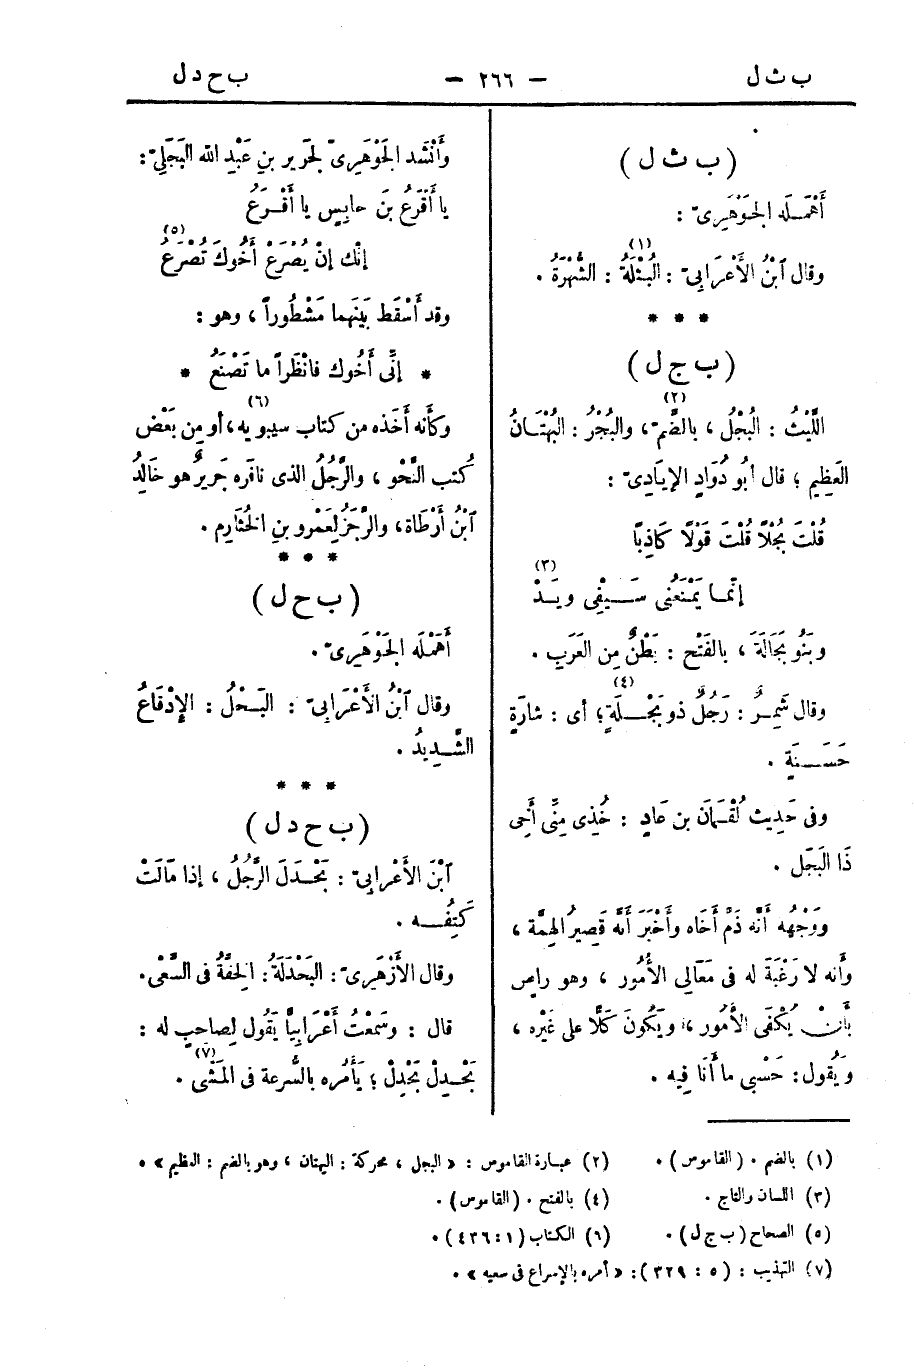 ب ث ل — ٢٦٦ — ب ح د ل
( ب ث ل )
أَهْمَلَه الجَوْهَرِىّ :
(١)
وقال ٱبْنُ الأَعْرَابِىّ : البُثْلَةُ : الشُّهْرَةُ .
* * *
( ب ج ل )
(٢)
اللَّيْثُ : البُجْلُ ، بالضَّمّ ، والبُجْرُ : البُهْتَانُ
العَظِيم ؛ قال أبُو دُوَادٍ الإيَادِىّ :
قُلْتَ بُجْلًا قُلْتَ قَوْلًا كَاذِبًا
(٣)
إنَّمَا يَمْنَعُنِى سَيْفِى ويَدْ
وبَنُو بَجَالَةَ ، بالفَتْح : بَطْنٌ مِن العَرَبِ .
(٤)
وقال شَمِرٌ : رَجُلٌ ذو بَجْلَةٍ ؛ أى : شارَةٍ
حَسَنَةٍ .
وفى حَدِيث لُقْمَانَ بن عَادٍ : خُذِى مِنِّى أَخِى
ذَا البَجَل .
ووَجْهُه أنَّه ذَمَّ أَخَاه وأَخْبَرَ أنَّه قَصِيرُ الهِمَّة ،
وأنه لا رَغْبَةَ له فى مَعَالِى الأُمُور ، وهو راضٍ
بأَنْ يُكْفَى الأُمُور ، ويَكُونَ كَلًّا على غَيْرِه ،
ويَقُول : حَسْبِى ما أَنَا فِيه .
وأَنْشَد الجَوْهَرِىّ لجَرِير بنِ عَبْدِ الله البَجَلِىّ :
يا أَقْرَعُ بنَ حابِسٍ يا أَقْرَعُ
(٥)
إنَّك إنْ يُصْرَعْ أَخُوكَ تُصْرَعُ
وقد أَسْقَط بَيْنَهما مَشْطُوراً ، وهو :
* إنِّى أَخُوك فانْظُراً ما تَصْنَعُ *
(٦)
وكأنه أَخَذه من كتاب سيبويه ، أو مِن بَعْض
كُتب النَّحْو ، والرَّجُلُ الذى نافَره جَرِيرٌ هو خَالِدُ
ٱبْنُ أَرْطَاة ، والرَّجَزُ لِعَمْرو بنِ الخُثَارِم .
* * *
( ب ح ل )
أَهْمَلَه الجَوْهَرِىّ .
وقال ٱبْنُ الأَعْرَابِىّ : البَحْلُ : الإدْقَاعُ
الشَّدِيدُ .
* * *
( ب ح د ل )
ٱبْنُ الأَعْرابِىّ : بَحْدَلَ الرَّجُلُ ، إذا مَالَتْ
كَتِفُه .
وقال الأَزْهَرِىّ : البَحْدَلَةُ : الخِفَّةُ فى السَّعْى .
قال : وسَمِعْتُ أَعْرَابِيًّا يَقُول لِصاحِبٍ له :
(٧)
بَحْدِلْ بَحْدِلْ ؛ يَأْمُره بالسُّرعة فى المَشْى .
(١) بالضم . (القاموس) . (٢) عبارة القاموس : « البجل ، محركة : البهتان ، وهو بالضم : العظيم » .
(٣) اللسان والتاج . (٤) بالفتح . (القاموس) .
(٥) الصحاح (ب ج ل) . (٦) الكتاب (١ : ٤٣٦) .
(٧) التهذيب : (٥ : ٣٢٩) : « أمره بالإسراع فى سعيه » .